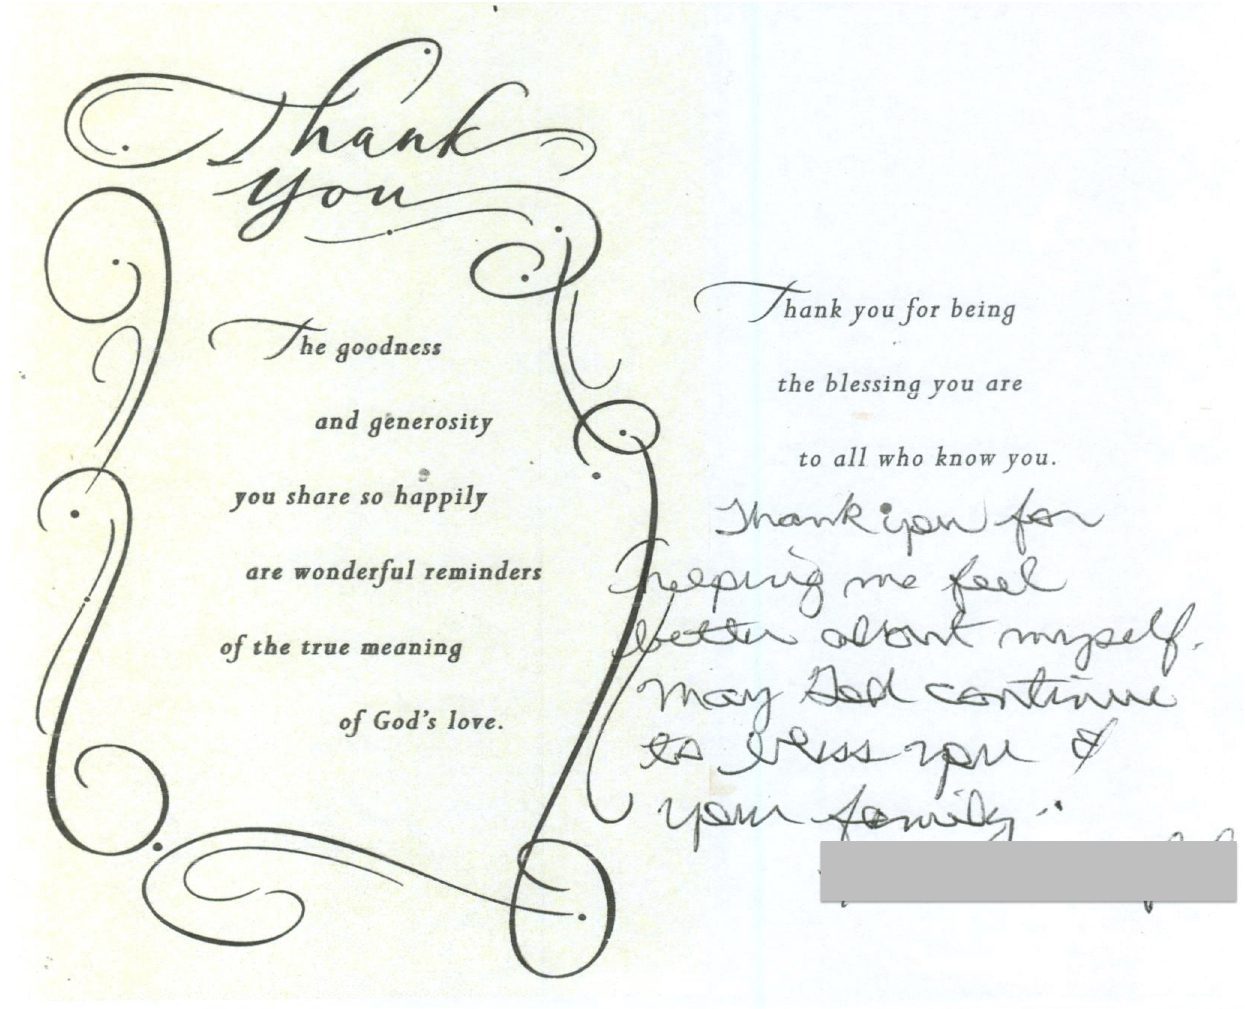 Thank
you
The goodness
and generosity
you share so happily
are wonderful reminders
of the true meaning
of God's love.
Thank you for being
the blessing you are
to all who know you.
Thank you for
helping me feel
better about myself.
May God continue
to bless you &
your family.